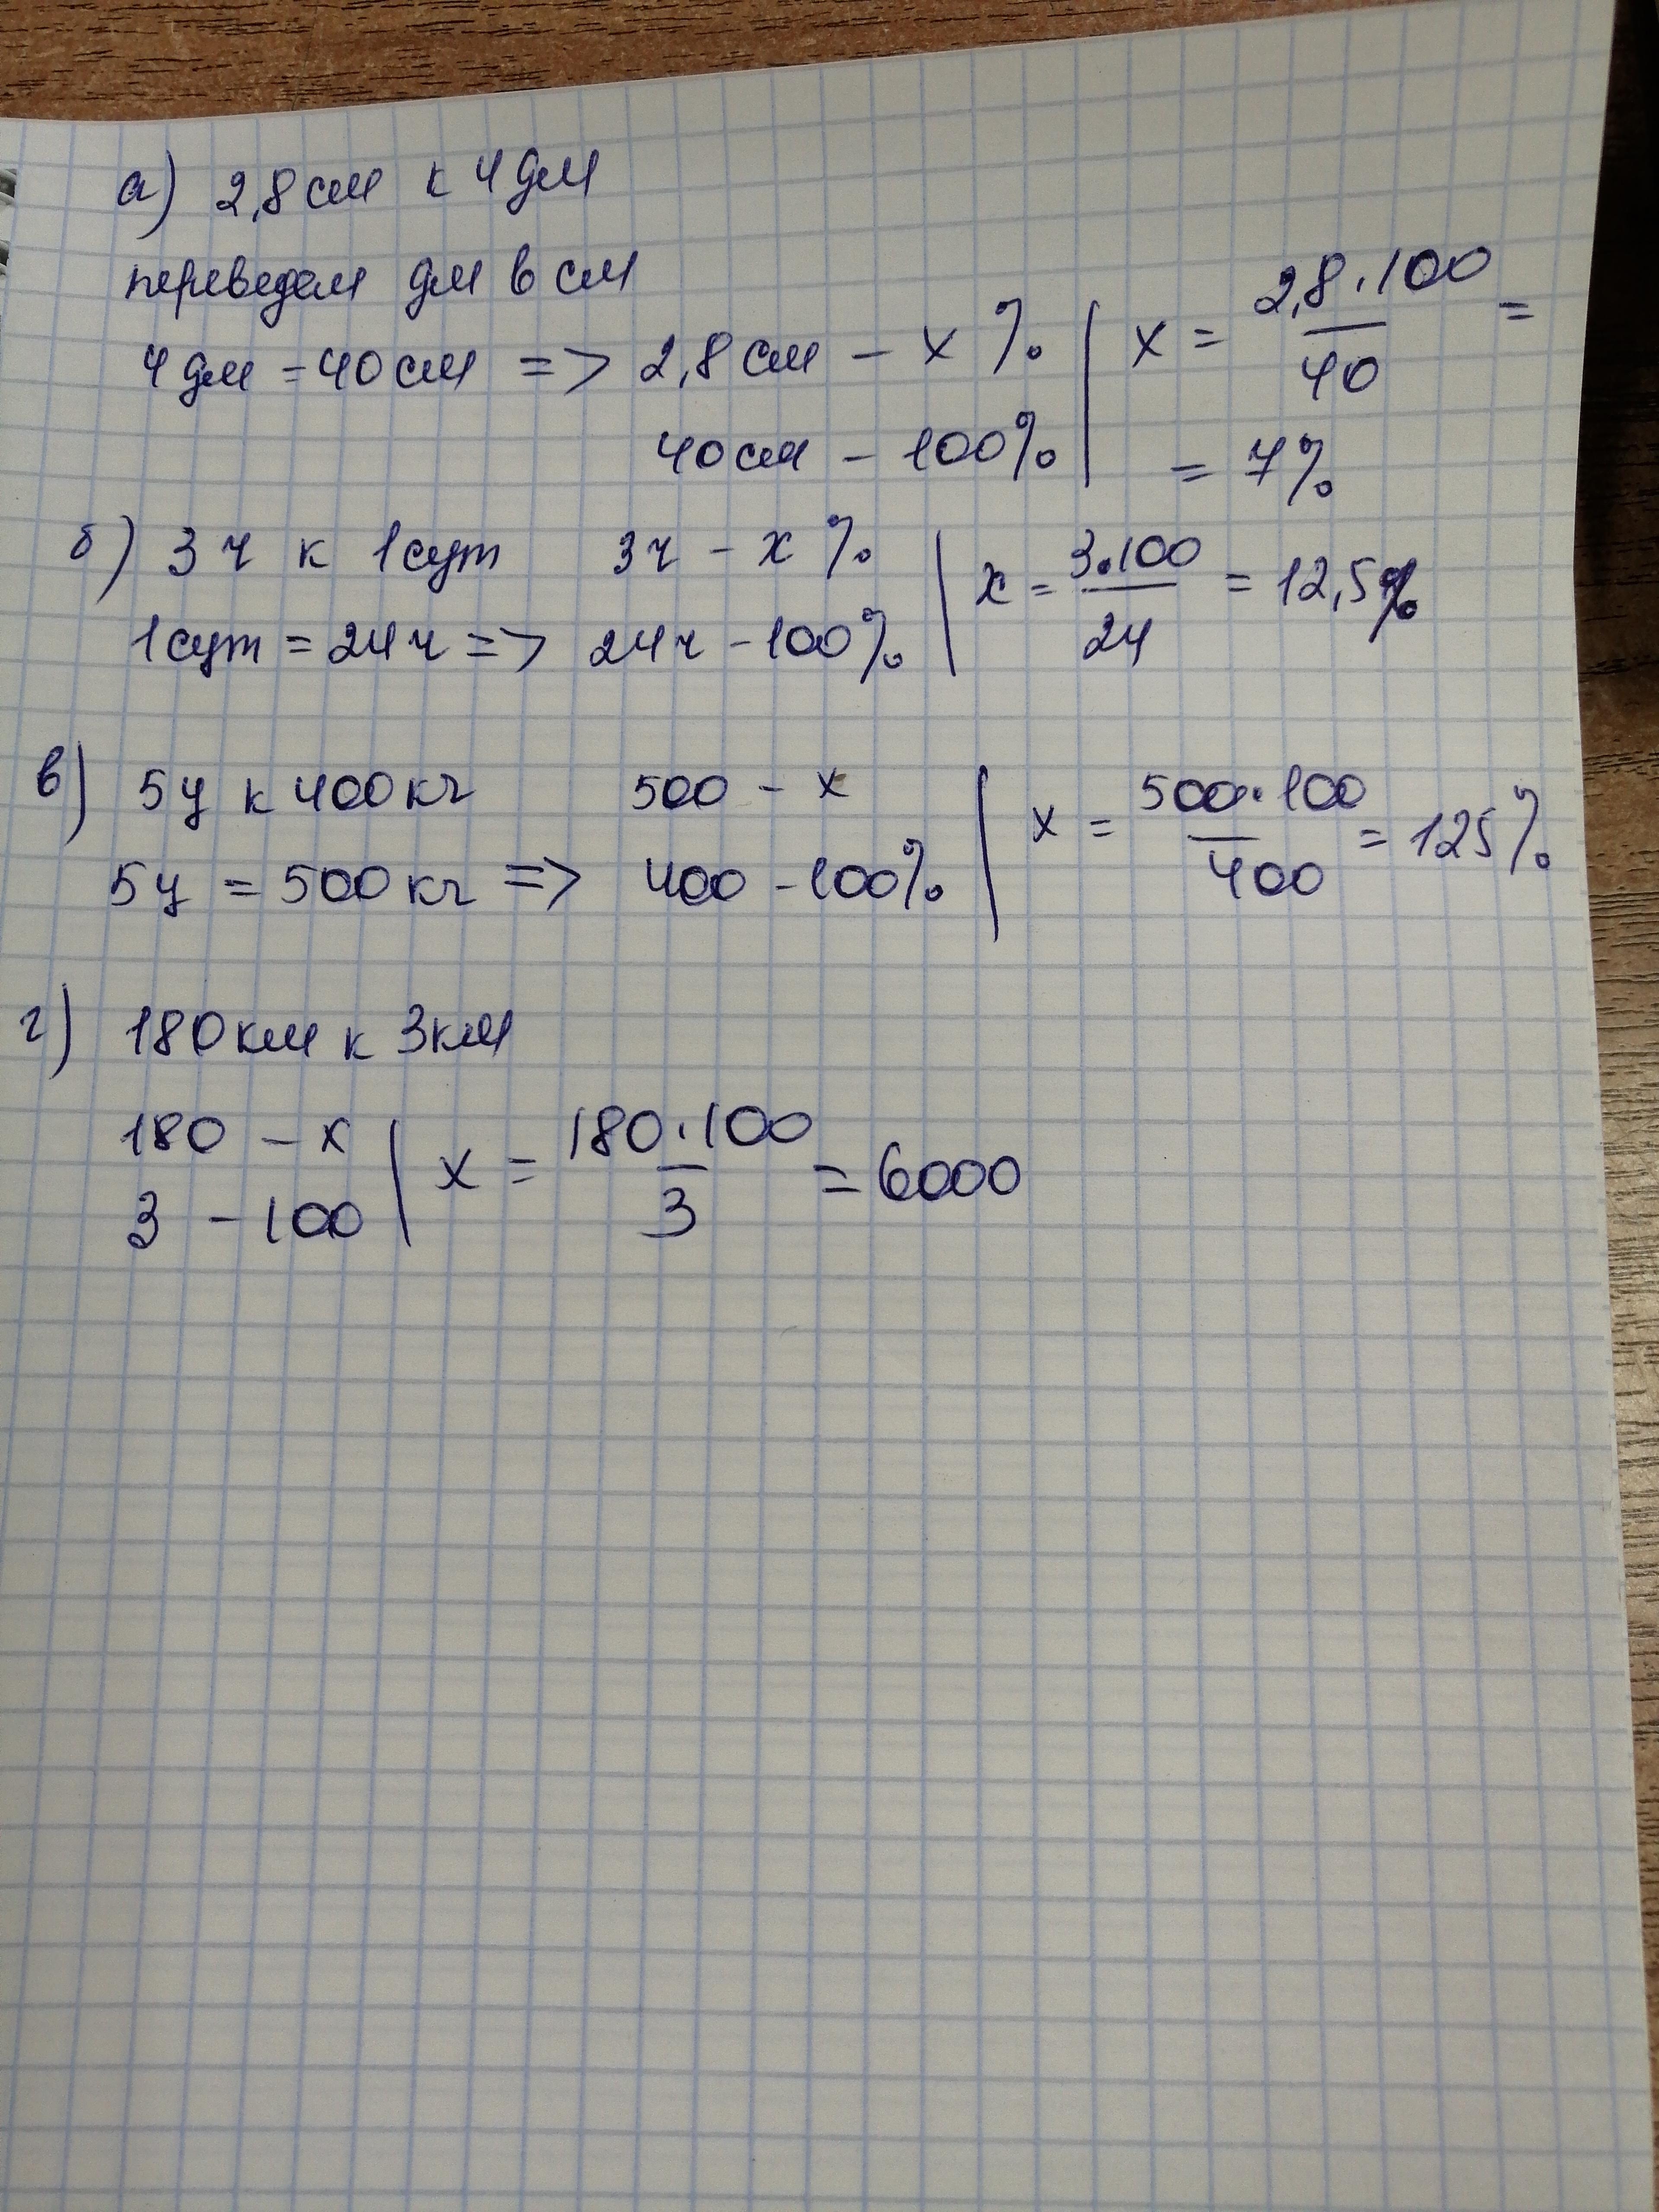 а) 2,8 см к 4 дм
переведем дм в см
4 дм = 40 см => 2,8 см – x % | x = 2,8·100 / 40 =
40 см – 100% | = 7%
б) 3 ч к 1 сут 3 ч – x % | x = 3·100 / 24 = 12,5%
1 сут = 24 ч => 24 ч – 100% |
в) 5 ц к 400 кг 500 – x | x = 500·100 / 400 = 125%
5 ц = 500 кг => 400 – 100% |
г) 180 км к 3 км
180 – x | x = 180·100 / 3 = 6000
3 – 100 |